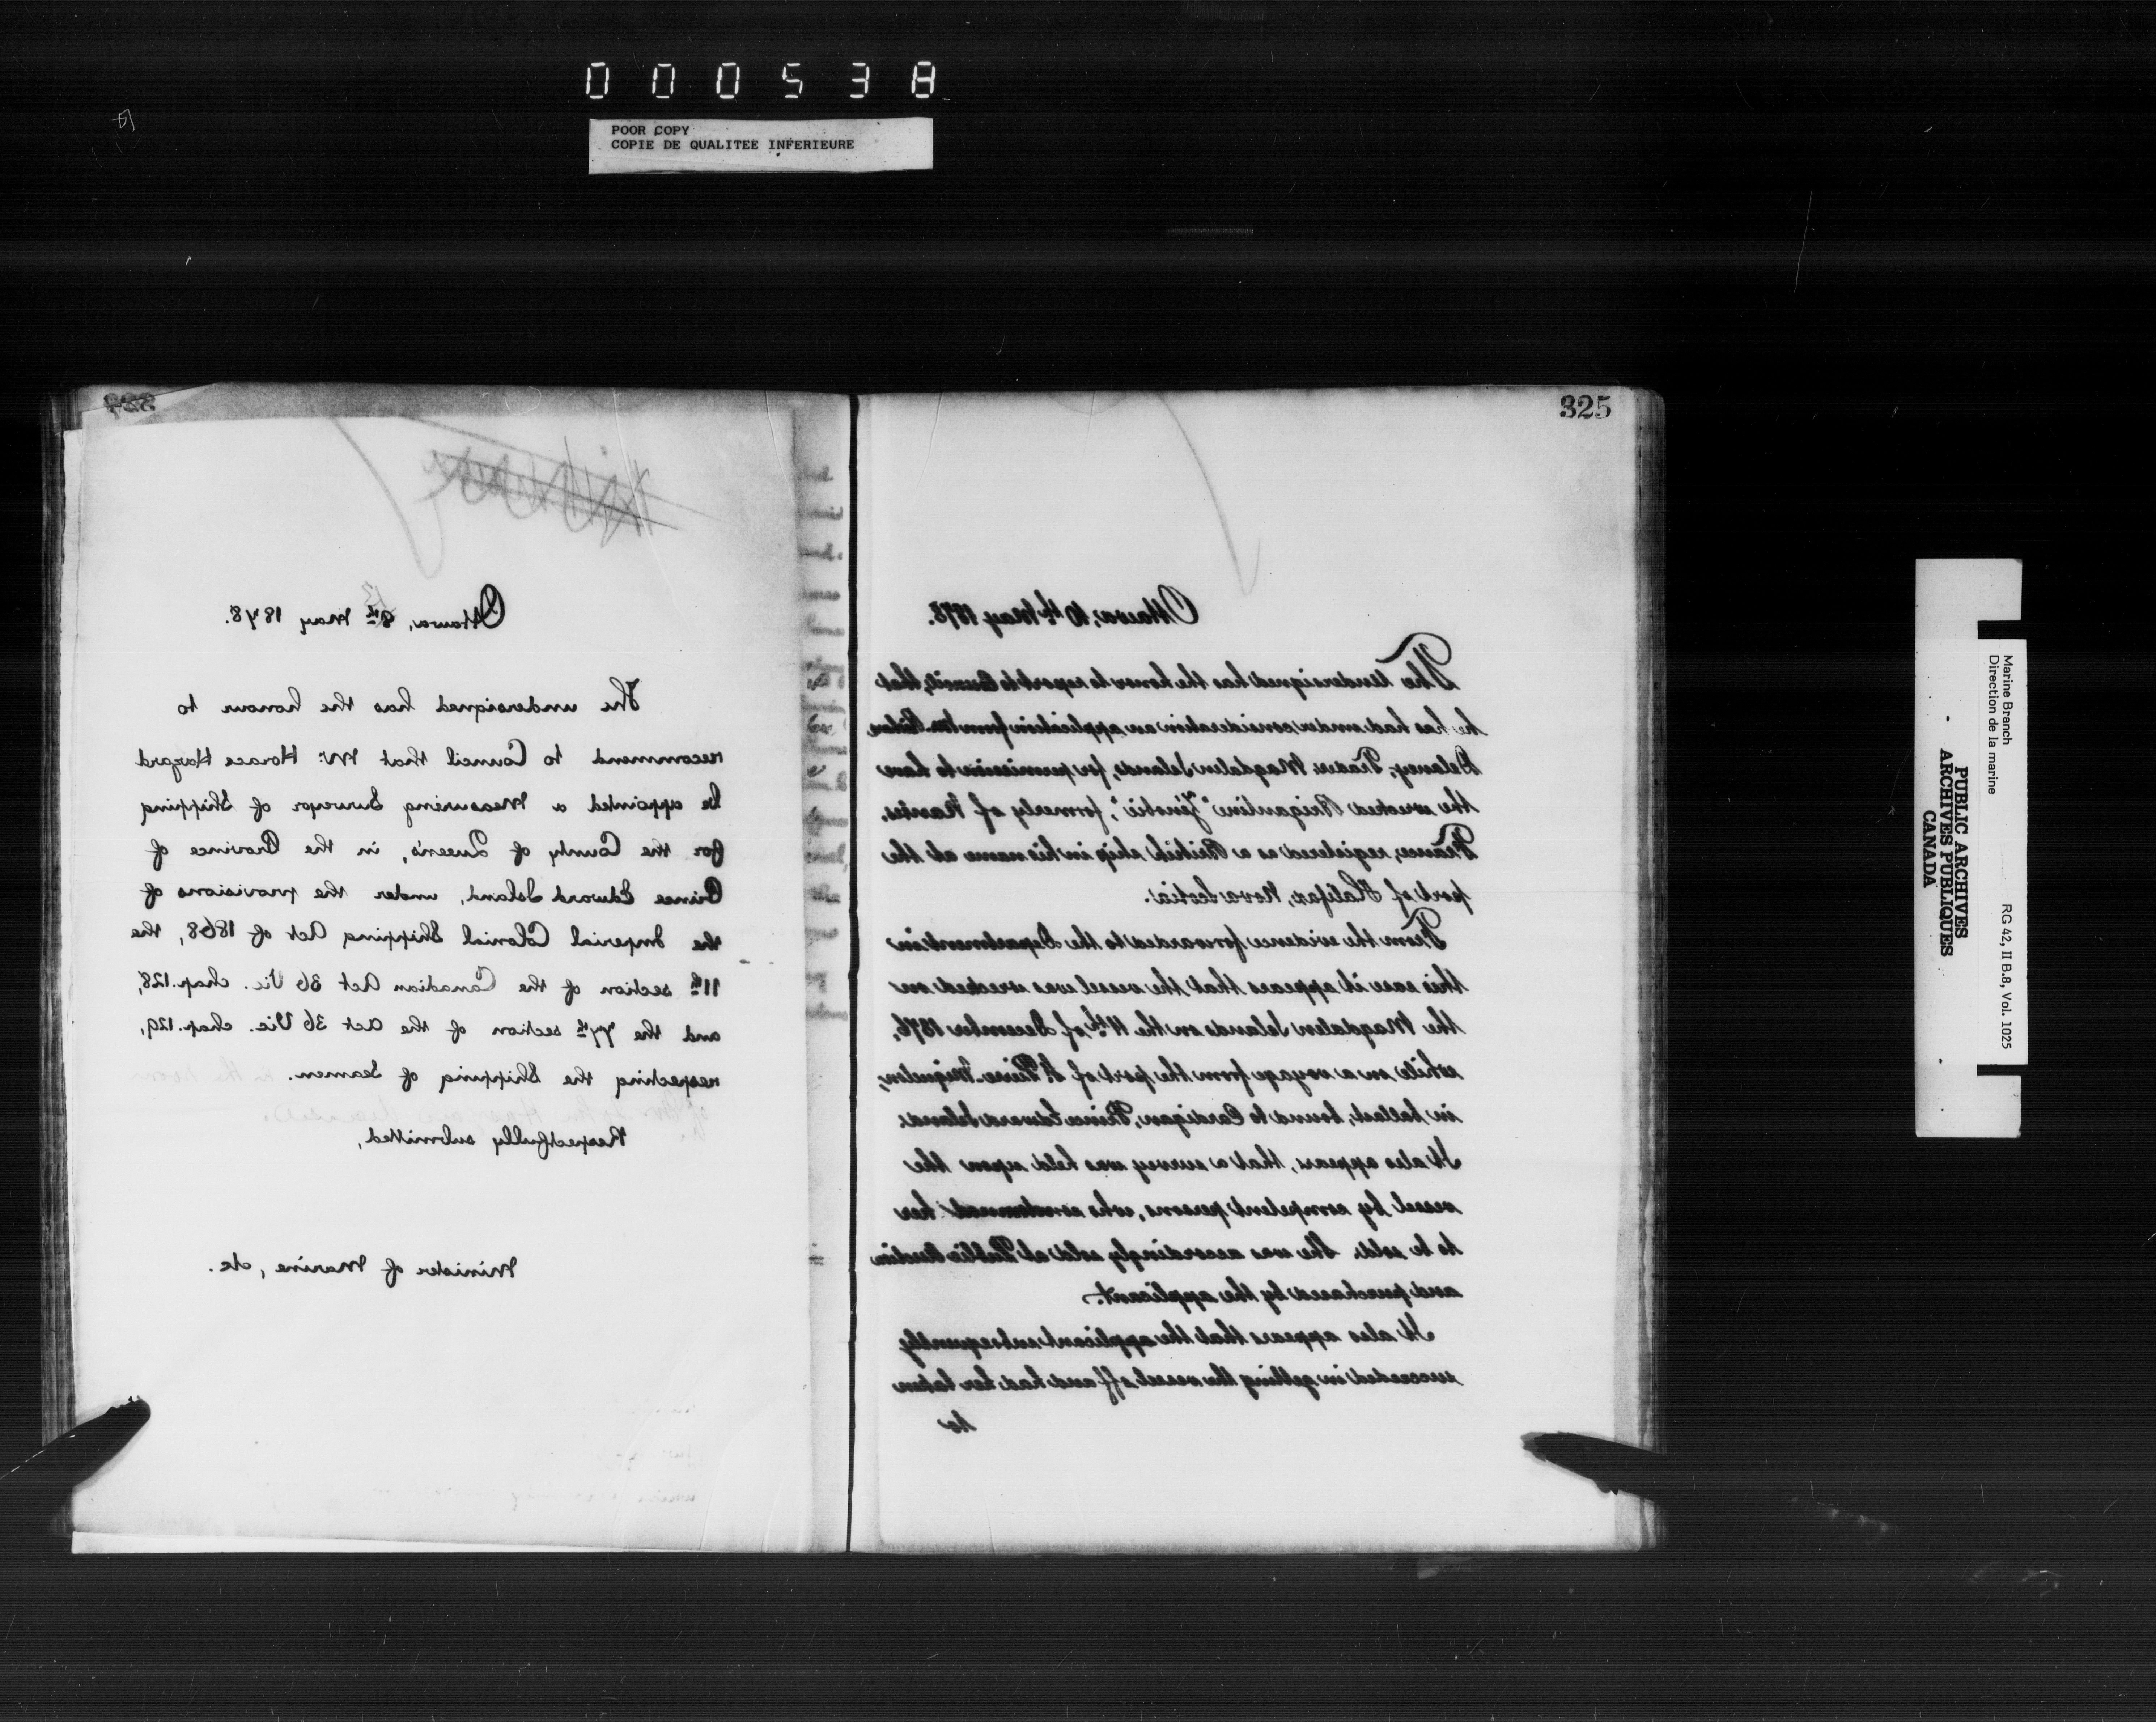 000538
POOR COPY
COPIE DE QUALITEE INFERIEURE
Ottawa, 9th May 1878.
The undersigned has the honour to
recommend to Council that Mr. Horace Hazard
be appointed a Measuring Surveyor of Shipping
for the County of Queen's, in the Province of
Prince Edward Island, under the provisions of
the Imperial Colonial Shipping Act of 1868, the
11th section of the Canadian Act 36 Vic. chap. 128,
and the 77th section of the Act 36 Vic. chap. 129,
respecting the Shipping of Seamen.
Respectfully submitted,
Minister of Marine, &c.
325
Ottawa, 10th May 1878.
The Undersigned has the honor to report to Council, that
he has had under consideration an application from
Delaney, Trader, Magdalen Islands, for permission to have
the wrecked Brigantine "Zenobie", formerly of Nantes,
France, registered as a British ship in his name at the
port of Halifax, Nova Scotia.
From the evidence forwarded to the Department in
this case it appears that the vessel was wrecked on
the Magdalen Islands on the 11th of December 1876,
while on a voyage from the port of St. Pierre Miquelon,
in ballast, bound to Cardigan, Prince Edward Island.
It also appears, that a survey was held upon the
vessel by competent persons, who condemned her
to be sold. She was accordingly sold at Public Auction
and purchased by the applicant.
It also appears that the applicant subsequently
succeeded in getting the vessel off and had her taken
to
PUBLIC ARCHIVES
ARCHIVES PUBLIQUES
CANADA
Marine Branch
Direction de la marine
RG 42, II B.8, Vol. 1025